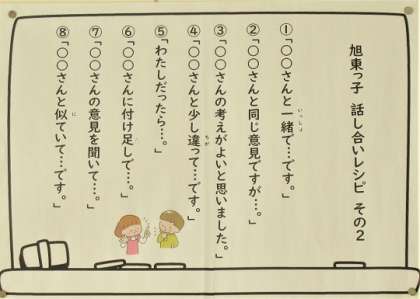 旭東っ子 話し合いレシピ その２
①「○○さんと一緒で…です。」
②「○○さんと同じ意見ですが…。」
③「○○さんの考えがよいと思いました。」
④「○○さんと少し違って…です。」
⑤「わたしだったら…。」
⑥「○○さんに付け足して…。」
⑦「○○さんの意見を聞いて…。」
⑧「○○さんと似ていて…です。」